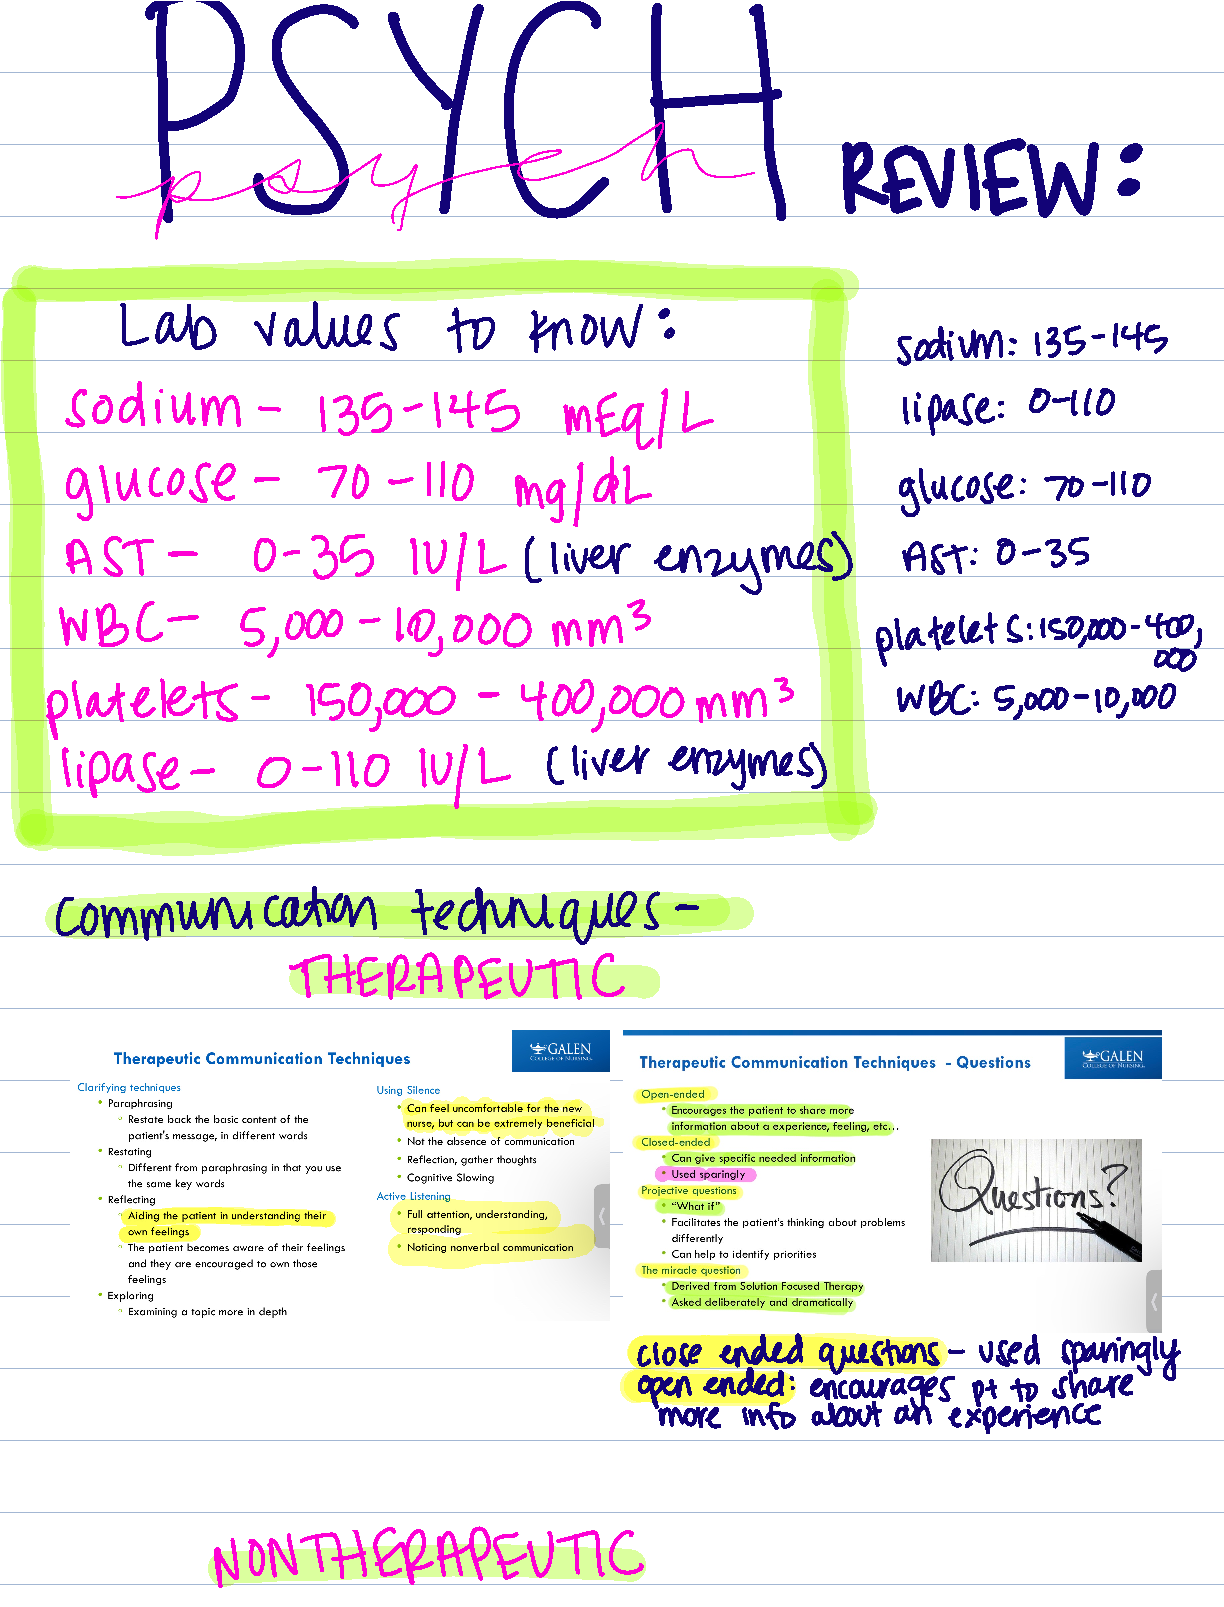 PSYCH
psych
REVIEW:
Lab values to know:
sodium - 135-145 mEq/L
glucose - 70-110 mg/dL
AST - 0-35 IU/L (liver enzymes)
WBC - 5,000-10,000 mm³
platelets - 150,000 - 400,000 mm³
lipase - 0-110 IU/L (liver enzymes)
sodium: 135-145
lipase: 0-110
glucose: 70-110
AST: 0-35
platelets: 150,000-400,
000
WBC: 5,000-10,000
Communication techniques -
THERAPEUTIC
Therapeutic Communication Techniques
GALEN
COLLEGE OF NURSING.
Clarifying techniques
• Paraphrasing
Restate back the basic content of the
patient's message, in different words
• Restating
Different from paraphrasing in that you use
the same key words
• Reflecting
Aiding the patient in understanding their
own feelings
The patient becomes aware of their feelings
and they are encouraged to own those
feelings
• Exploring
Examining a topic more in depth
Using Silence
• Can feel uncomfortable for the new
nurse, but can be extremely beneficial
• Not the absence of communication
• Reflection, gather thoughts
• Cognitive Slowing
Active Listening
• Full attention, understanding,
responding
• Noticing nonverbal communication
Therapeutic Communication Techniques - Questions
GALEN
COLLEGE OF NURSING.
Open-ended
• Encourages the patient to share more
information about a experience, feeling, etc…
Closed-ended
• Can give specific needed information
• Used sparingly
Projective questions
• "What if"
• Facilitates the patient's thinking about problems
differently
• Can help to identify priorities
The miracle question
• Derived from Solution Focused Therapy
• Asked deliberately and dramatically
Questions?
close ended questions - used sparingly
open ended: encourages pt to share
more info about an experience
NONTHERAPEUTIC